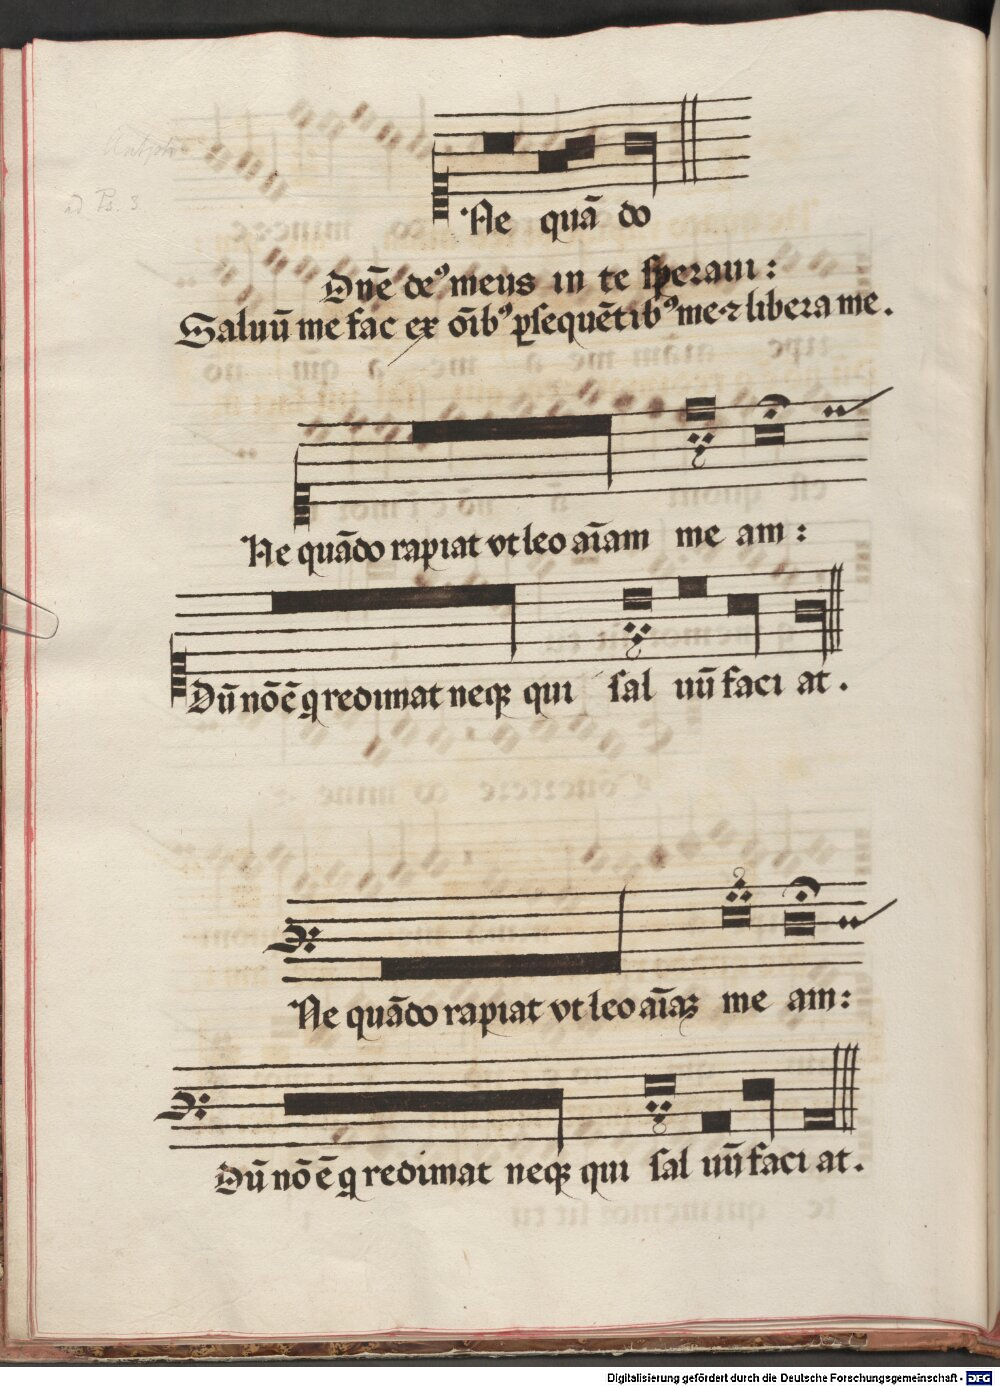 Antiph
ad Ps. 3.
Ne quā do
Dnē deꝰ meus in te speraui :
Saluū me fac ex oībꝰ ꝑsequētibꝰ me ⁊ libera me .
Ne quādo rapiat vt leo aīam me am :
Dū nō ē q redimat neqꝫ qui sal uū faci at .
Ne quādo rapiat vt leo aīaꝫ me am :
Dū nō ē q redimat neqꝫ qui sal uū faci at .
Digitalisierung gefördert durch die Deutsche Forschungsgemeinschaft - DFG